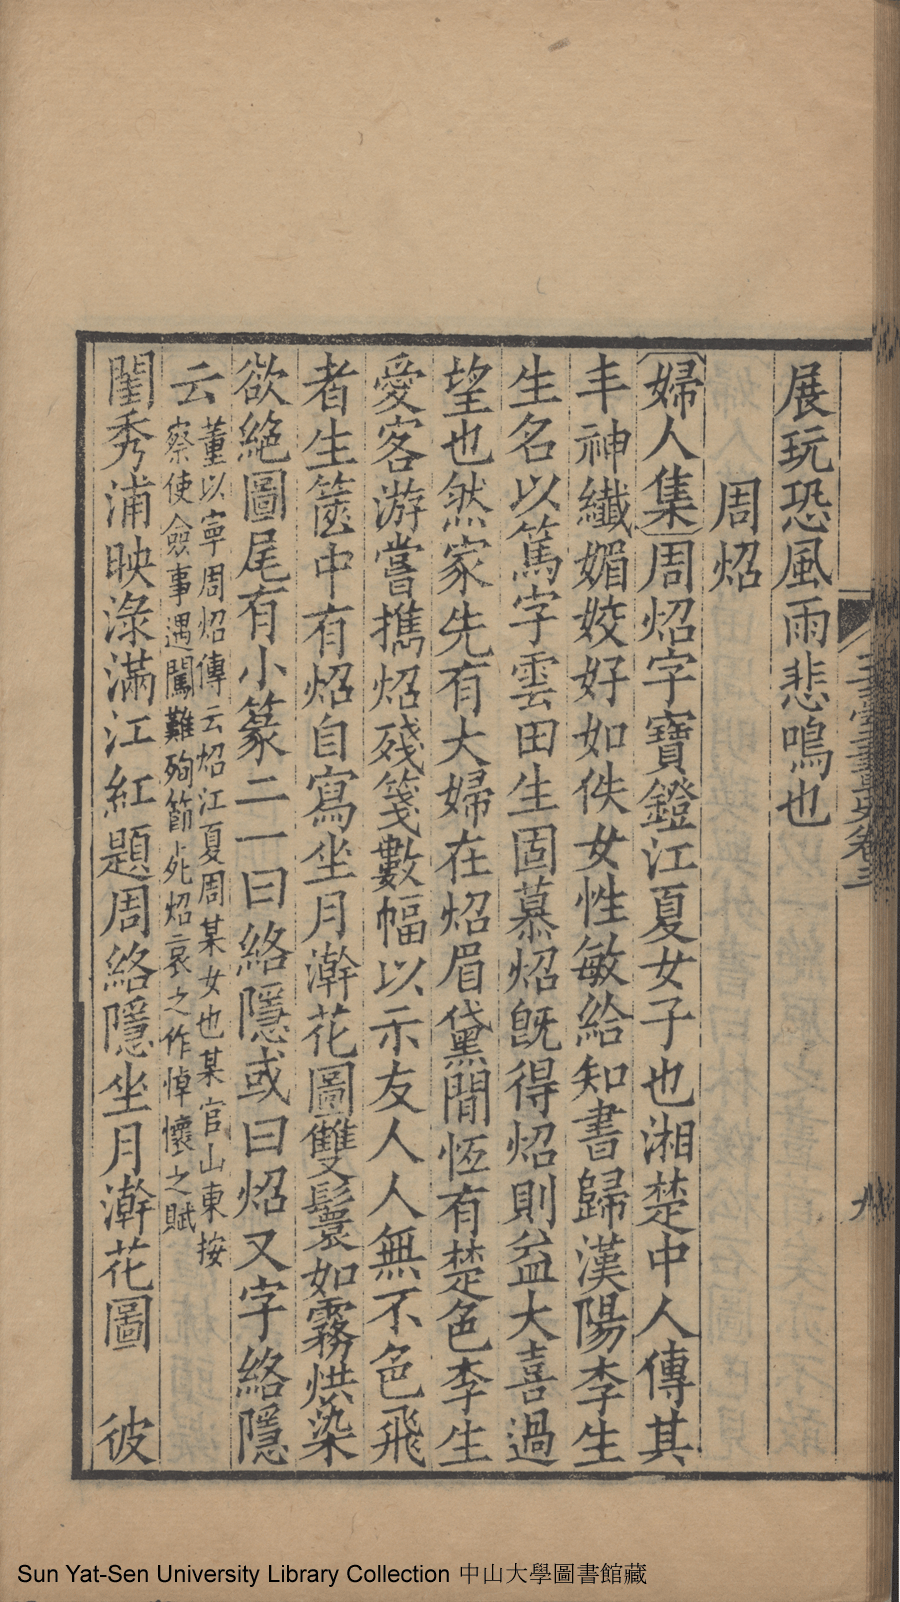 展玩恐風雨悲鳴也
周炤
婦人集周炤字寶鐙江夏女子也湘楚中人傳其
丰神纖媚姣好如佚女性敏給知書歸漢陽李生
生名以篤字雲田生固慕炤旣得炤則益大喜過
望也然家先有大婦在炤眉黛間恆有楚色李生
愛客游嘗攜炤殘箋數幅以示友人人無不色飛
者生篋中有炤自寫坐月澣花圖雙鬟如霧烘染
欲絕圖尾有小篆二一曰絡隱或曰炤又字絡隱
云
董以寧周炤傳云炤江夏周某女也某官山東按
察使僉事遇闖難殉節死炤哀之作悼懷之賦
閨秀浦映淥滿江紅題周絡隱坐月澣花圖 彼
玉臺畫史卷三
九
Sun Yat-Sen University Library Collection 中山大學圖書館藏